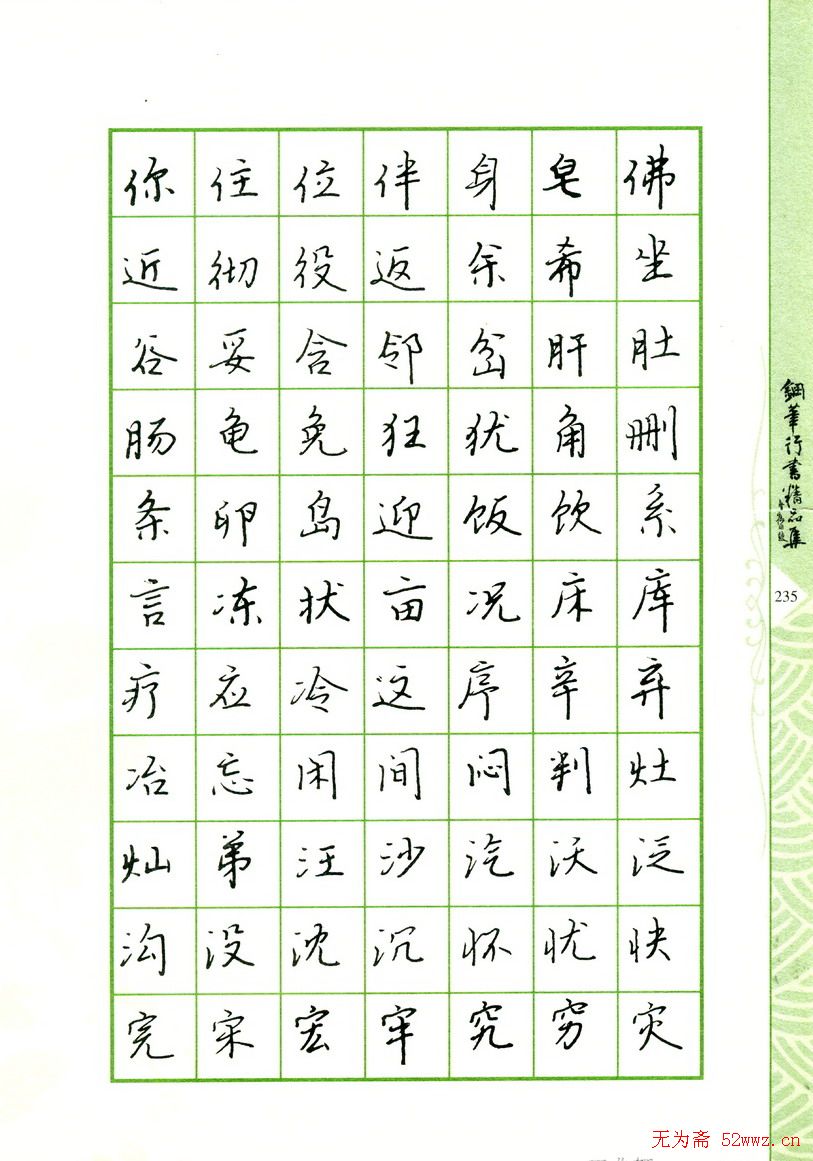 你住位伴身皂佛
近彻役返余希坐
谷妥含邻岔肝肚
肠龟免狂犹角删
条卵岛迎饭饮系
言冻状亩况床库
疗应冷这序辛弃
冶忘闲间闷判灶
灿弟汪沙汽沃泛
沟没沈沉怀忧快
完宋宏牢究穷灾
行书精品集
235
无为斋 52wwz.cn